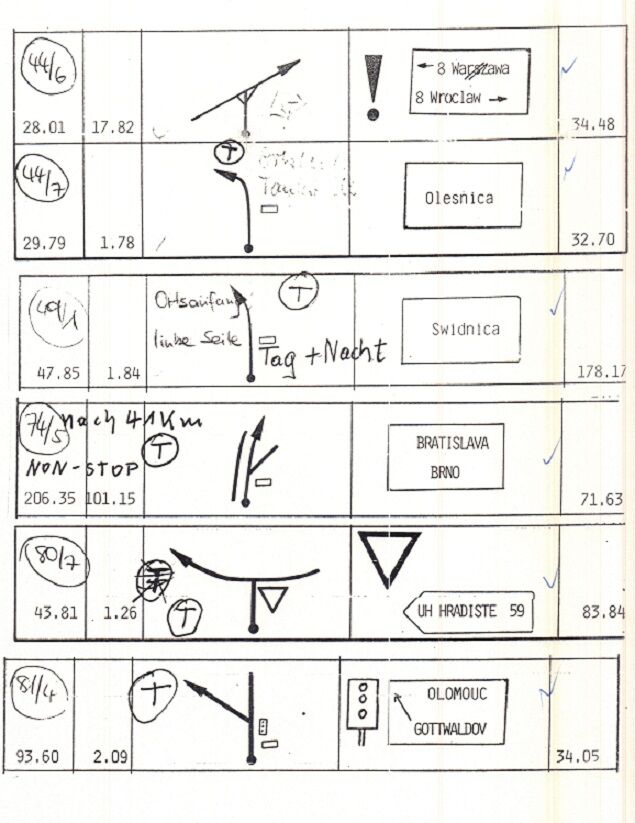 44/6
← 8 Warszawa
8 Wroclaw →
28.01 17.82 34.48
44/7
T
Olesnica
29.79 1.78 32.70
49/1
Ortsanfang
T
linke Seite
Swidnica
Tag + Nacht
47.85 1.84 178.17
74/5 nach 41 Km
T
BRATISLAVA
NON-STOP
BRNO
206.35 101.15 71.63
80/7
T
T
UH HRADISTE 59
43.81 1.26 83.84
81/4
T
OLOMOUC
GOTTWALDOV
93.60 2.09 34.05